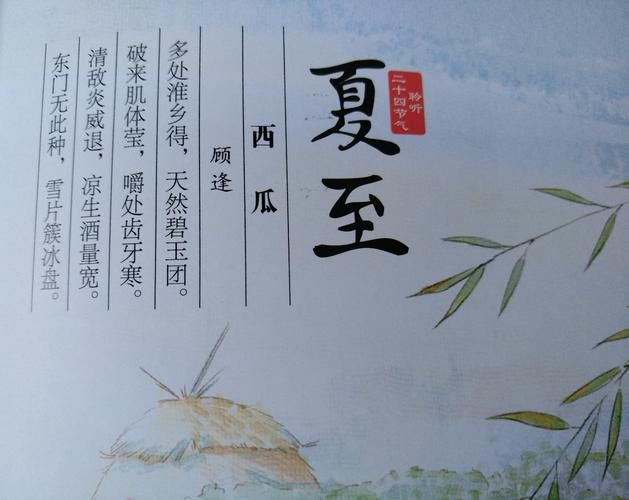 夏至
聆听
二十四节气
西瓜
顾逢
多处淮乡得，天然碧玉团。
破来肌体莹，嚼处齿牙寒。
清敌炎威退，凉生酒量宽。
东门无此种，雪片簇冰盘。